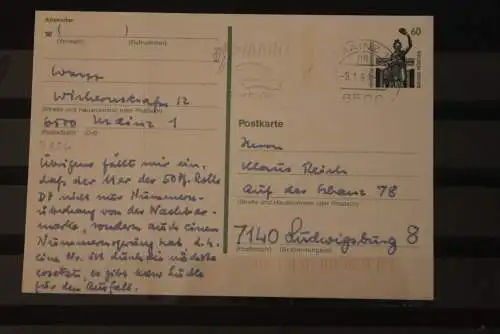 Absender
(Vorwahl) (Rufnummer)
Wichernstraße 12
(Straße und Hausnummer oder Postfach)
6500 Mainz 1
(Postleitzahl) (Ort)
Übrigens fällt mir ein,
daß der 11er der 50 Pf. Rolle
nicht nur Nummern-
von der Nachbar-
marke, sondern auch einen
Nummernsprung hat, d.h.
eine Nr. ist durch die nächste
ersetzt, es gibt keine Lücke
für den Ausfall.
MAINZ
6500
60
Postkarte
Herrn
Klaus Reich
Auf der Schanz 78
(Straße und Hausnummer oder Postfach)
7140 Ludwigsburg 8
(Postleitzahl) (Bestimmungsort)